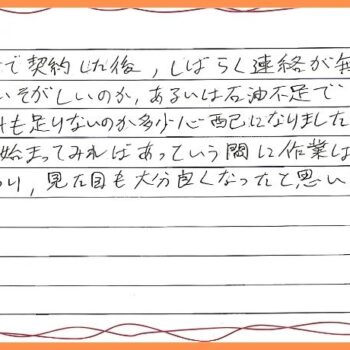 で契約した後，しばらく連絡が無
いそがしいのか，あるいは石油不足で
も足りないのか多少心配になりました
始まってみればあっという間に作業は
わり，見た目も大分良くなったと思い